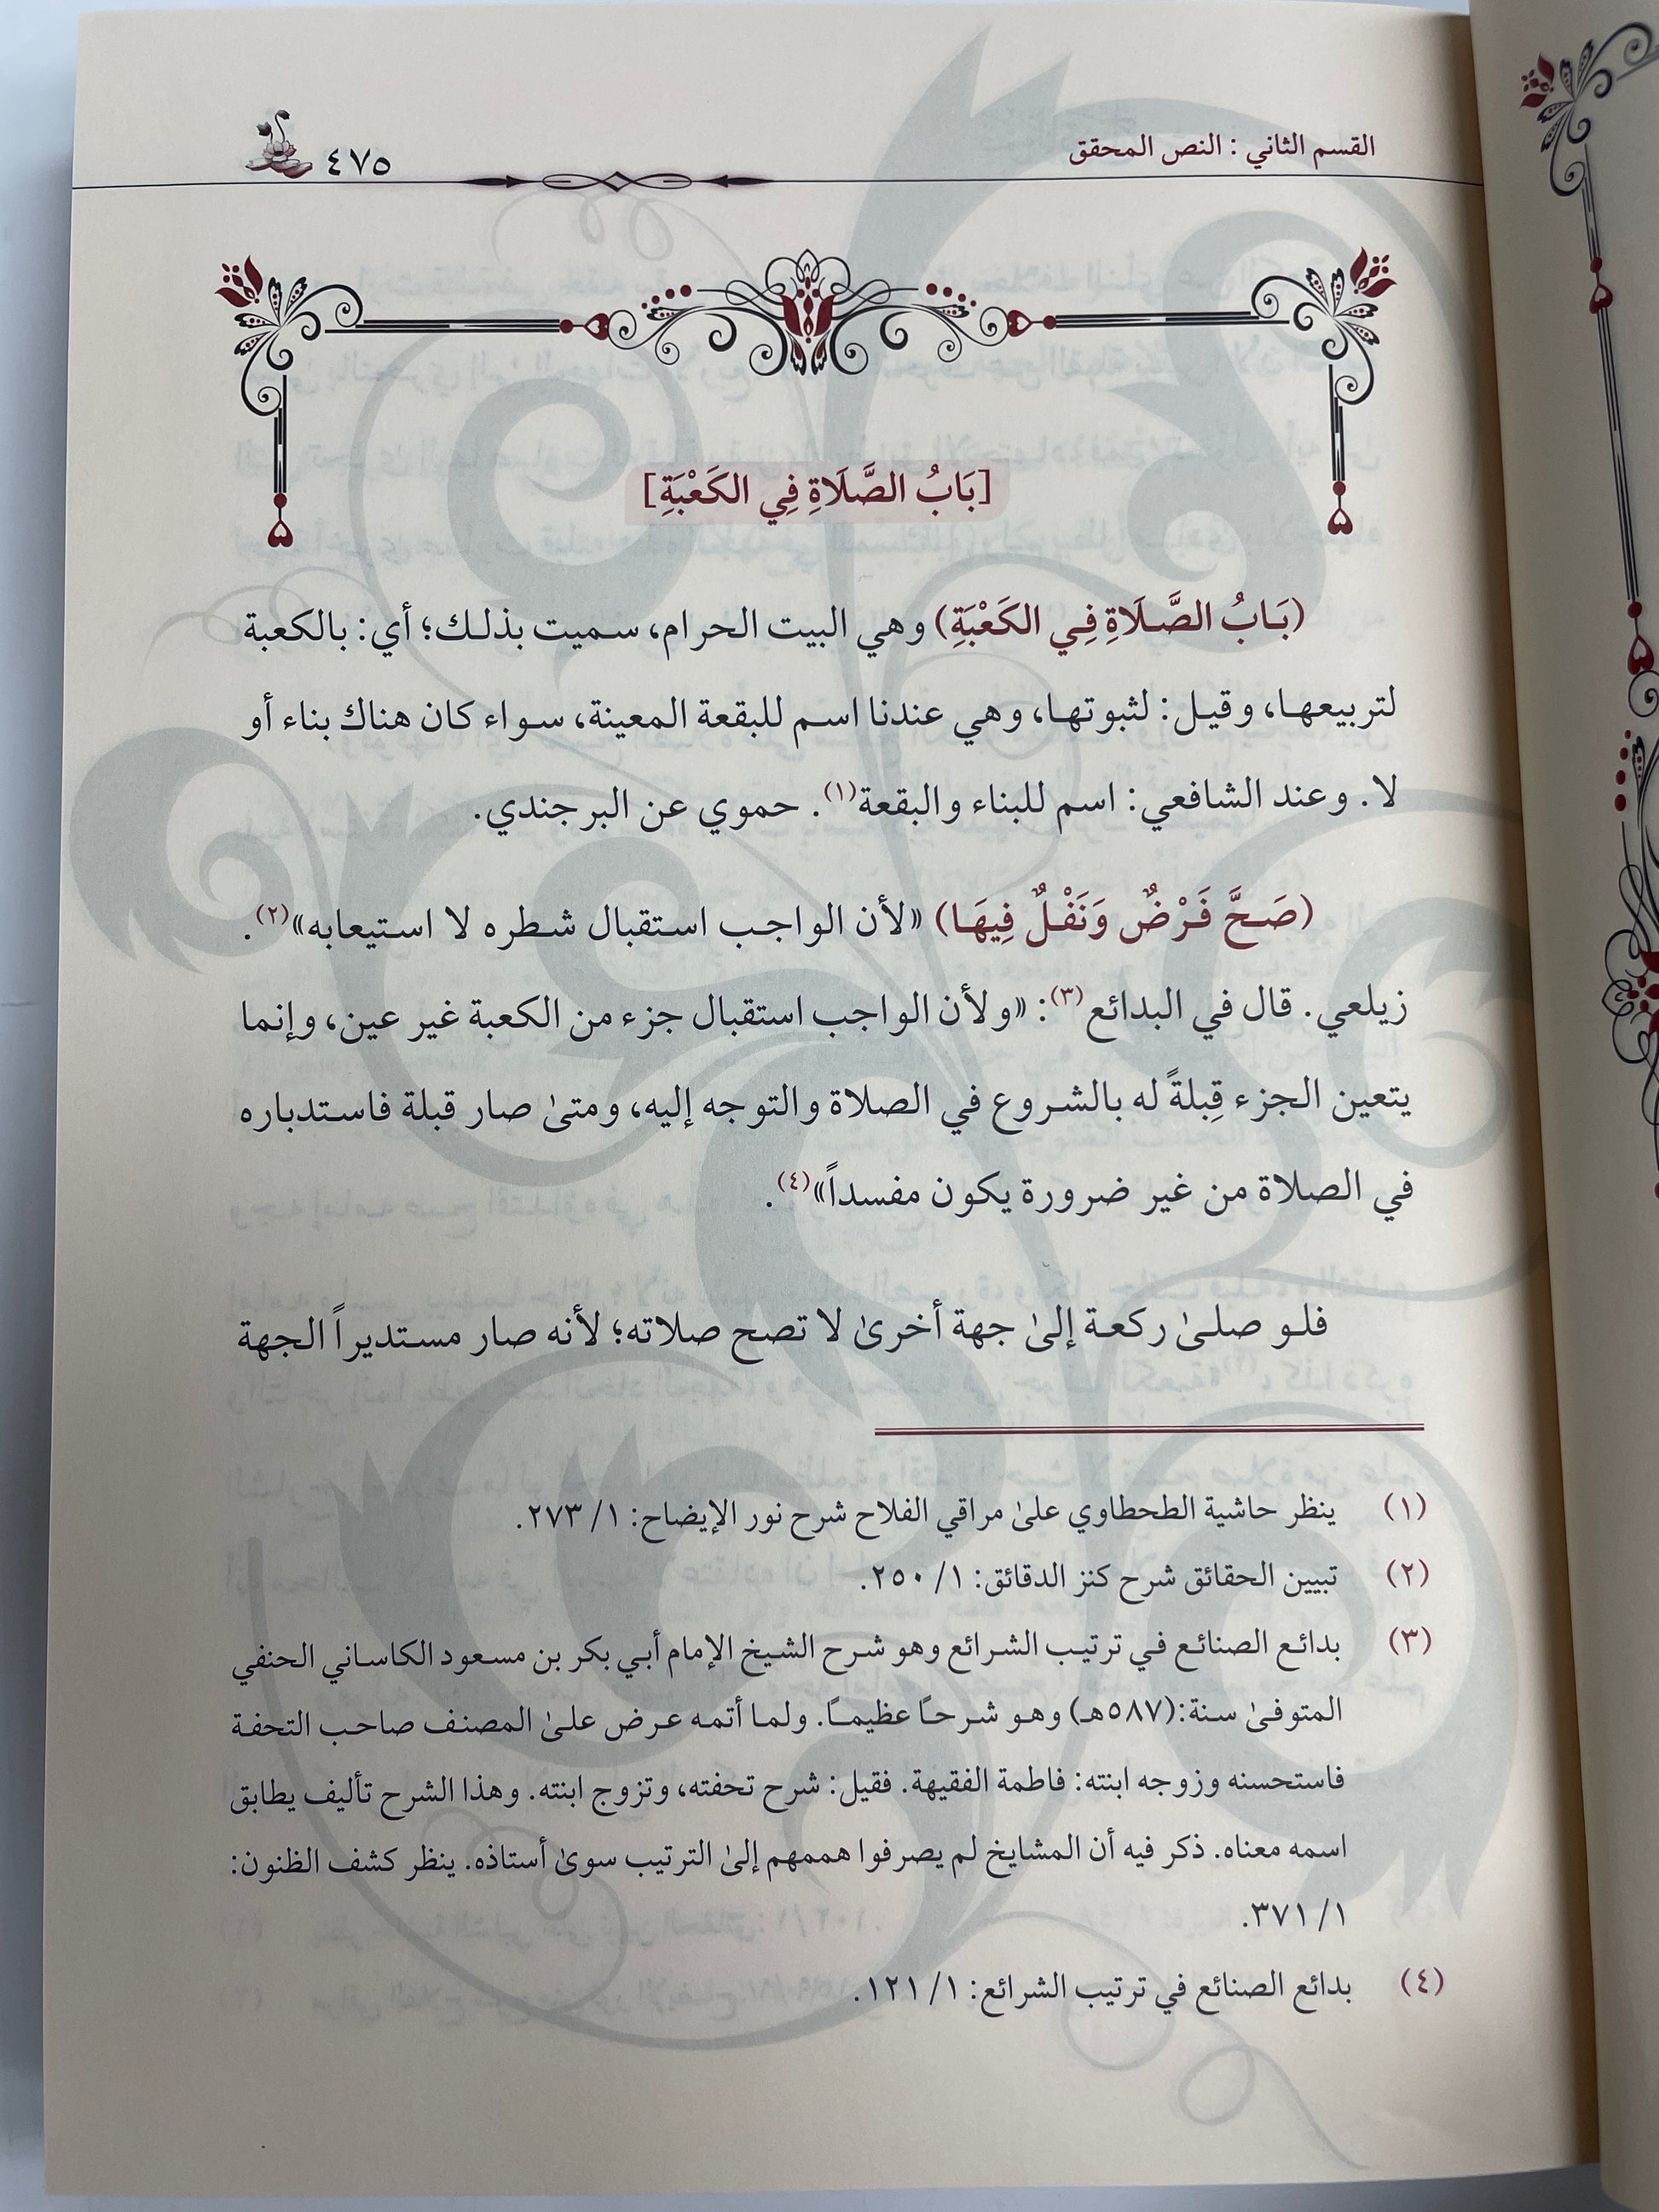 القسم الثاني : النص المحقق
٤٧٥
[بَابُ الصَّلَاةِ فِي الكَعْبَةِ]
(بَابُ الصَّلَاةِ فِي الكَعْبَةِ) وهي البيت الحرام، سميت بذلك؛ أي: بالكعبة
لتربيعها، وقيل: لثبوتها، وهي عندنا اسم للبقعة المعينة، سواء كان هناك بناء أو
لا. وعند الشافعي: اسم للبناء والبقعة(١). حموي عن البرجندي.
(صَحَّ فَرْضٌ وَنَفْلٌ فِيهَا) «لأن الواجب استقبال شطره لا استيعابه»(٢).
زيلعي. قال في البدائع(٣): «ولأن الواجب استقبال جزء من الكعبة غير عين، وإنما
يتعين الجزء قِبلةً له بالشروع في الصلاة والتوجه إليه، ومتىٰ صار قبلة فاستدباره
في الصلاة من غير ضرورة يكون مفسداً»(٤).
فلو صلىٰ ركعة إلىٰ جهة أخرىٰ لا تصح صلاته؛ لأنه صار مستديراً الجهة
(١) ينظر حاشية الطحطاوي علىٰ مراقي الفلاح شرح نور الإيضاح: ١/ ٢٧٣.
(٢) تبيين الحقائق شرح كنز الدقائق: ١/ ٢٥٠.
(٣) بدائع الصنائع في ترتيب الشرائع وهو شرح الشيخ الإمام أبي بكر بن مسعود الكاساني الحنفي
المتوفىٰ سنة:(٥٨٧هـ) وهو شرحًا عظيمًا. ولما أتمه عرض علىٰ المصنف صاحب التحفة
فاستحسنه وزوجه ابنته: فاطمة الفقيهة. فقيل: شرح تحفته، وتزوج ابنته. وهذا الشرح تأليف يطابق
اسمه معناه. ذكر فيه أن المشايخ لم يصرفوا هممهم إلىٰ الترتيب سوىٰ أستاذه. ينظر كشف الظنون:
١/ ٣٧١.
(٤) بدائع الصنائع في ترتيب الشرائع: ١/ ١٢١.